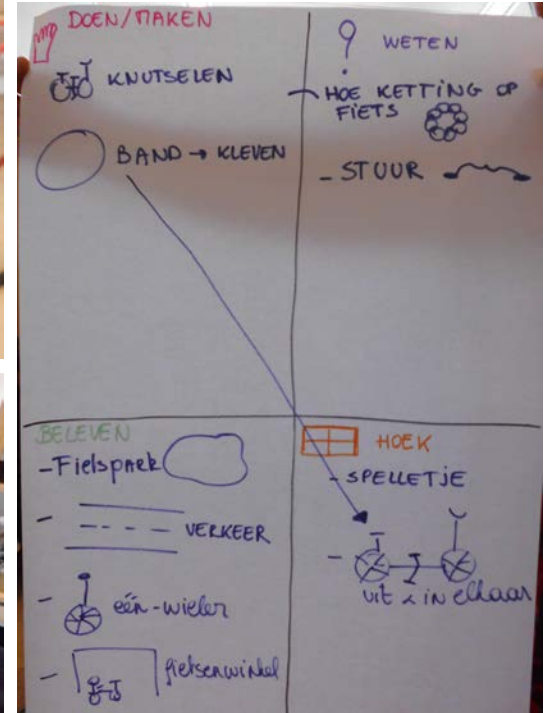 DOEN/MAKEN
KNUTSELEN
BAND → KLEVEN
? WETEN
- HOE KETTING OP
FIETS
- STUUR
BELEVEN
- Fietsparк
- VERKEER
- één-wieler
- fietsenwinkel
HOEK
- SPELLETJE
- uit & in elkaar